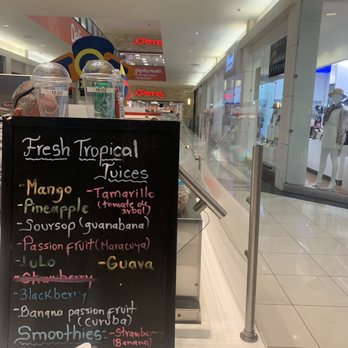 JCPenney
Dignity Health
JCPenney
Fresh Tropical
Juices
- Mango
- Pineapple
- Soursop (guanabana)
- Passion fruit (Maracuya)
- Lulo
- Strawberry
- Blackberry
- Banana passion fruit
(curuba)
Smoothies
- Tamarillo
(tomate de
árbol)
- Guava
- Strawberry
(Banana)